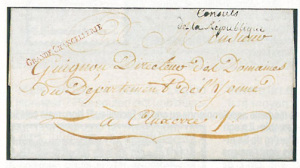 Consuls
de la République
GRANDE CHANCELLERIE
Guignon Directeur des Domaines
du Département de l'Yonne
à Auxerre